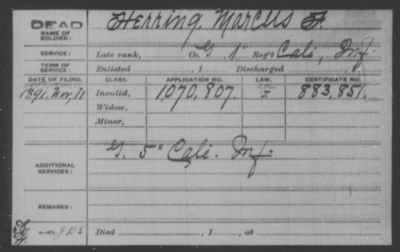 DEAD
NAME OF SOLDIER: Herring, Marcus F.
SERVICE: Late rank, Co. G, 4" Reg't Cali, Inf.
TERM OF SERVICE: Enlisted , 1 Discharged , 1
DATE OF FILING. CLASS. APPLICATION NO. LAW. CERTIFICATE NO.
1891, Nov, 11 Invalid, 1,070,807. 883,851.
Widow,
Minor,
ADDITIONAL SERVICES: G. 5" Cali. Inf.
REMARKS:
Died , 1 , at